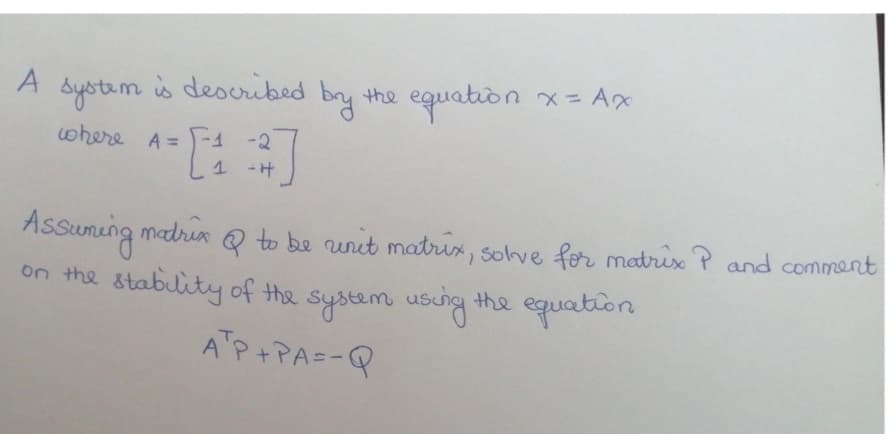 A system is described by the equation x = Ax
where A = [-1 -2
1 -4]
Assuming matrix Q to be unit matrix, solve for matrix P and comment
on the stability of the system using the equation
AᵀP + PA = -Q